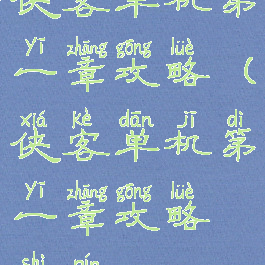 侠客单机第
yī zhāng gōng lüè
一章攻略（
xiá kè dān jī dì
侠客单机第
yī zhāng gōng lüè
一章攻略
shì pín